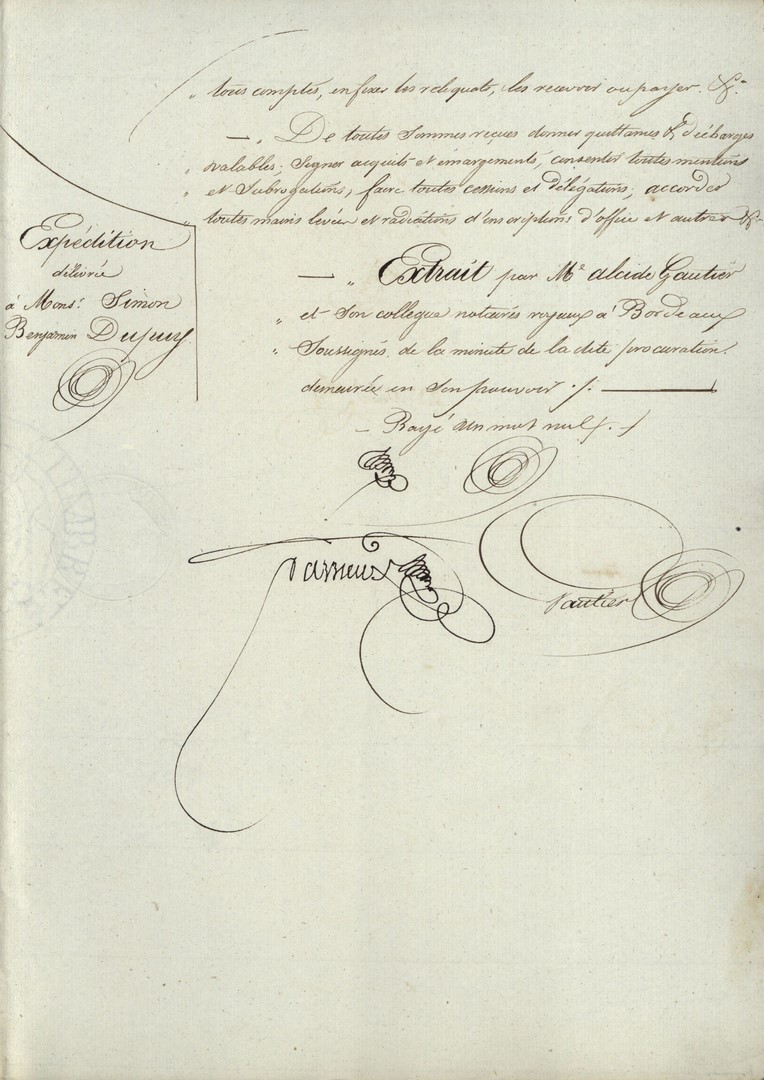 „ tous comptes, en fixer les reliquats, les recevoir ou payer. &a.
— „ De toutes sommes reçues donner quittances & décharges
„ valables; signer acquits et émargements, consentir toutes mentions
„ et subrogations, faire toutes cessions et délégations; accorder
„ toutes mains levées et radiations d'inscriptions d'office et autres &a.
Expédition
délivrée
à Monsr. Simon
Benjamin Dupuy
— „ Extrait par Me. alcide Gautier
„ et son collègue notaires royaux à Bordeaux
„ soussignés, de la minute de la dite procuration.
demeurée en son pouvoir ./.
— Rayé un mot nul ./.
Gautier